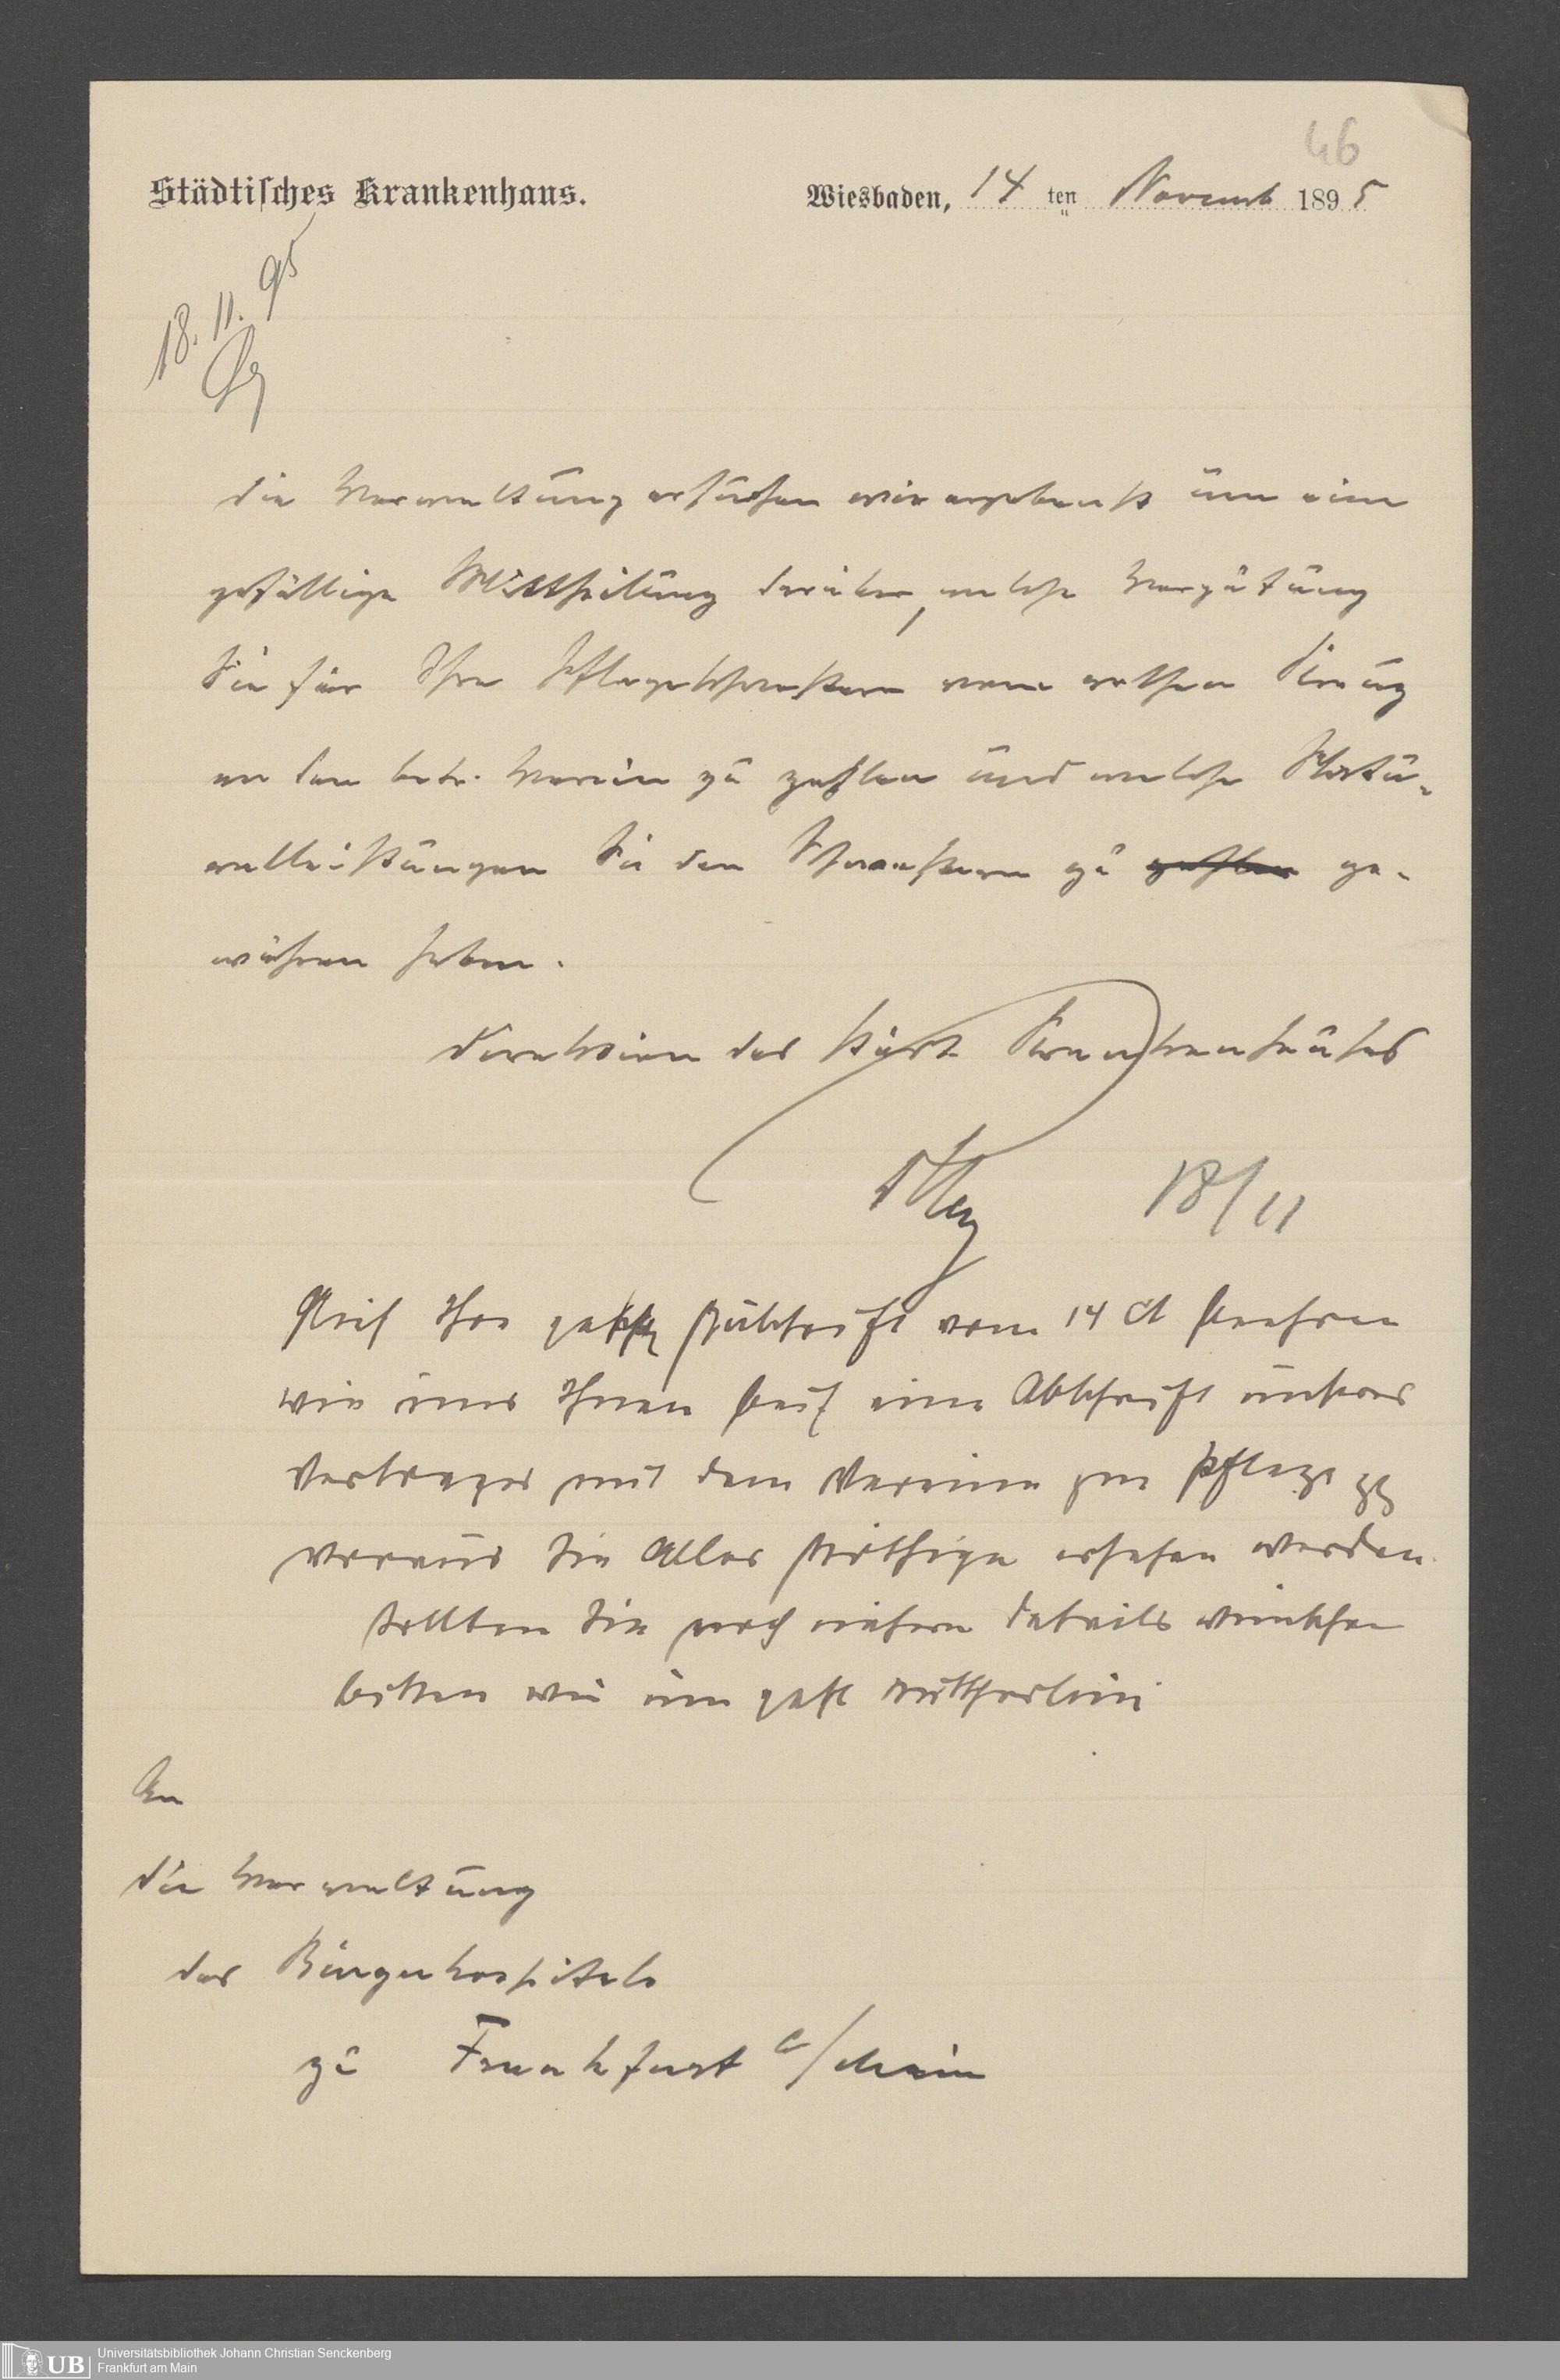 46
Städtisches Krankenhaus.
Wiesbaden, 14 ten Novemb 1895
18. 11. 95
die Verwaltung ersuchen wir ergebenst um eine
gefällige Mittheilung darüber, welche Vergütung
Sie für Ihre Pflegeschwestern vom rothen Kreuz
an den betr. Verein zu zahlen und welche Natu-
ralleistungen Sie den Schwestern zu zahlen ge-
währen haben.
Direktion des städt. Krankenhauses
18/11
Auf Ihre Zuschrift vom 14 ct beehren
wir uns Ihnen beif eine Abschrift unseres
Vertrages mit dem Vereine zur Pflege
woraus Sie Alles Nöthige ersehen werden.
Sollten Sie noch nähere Details wünschen
bitten wir um gefl
An
die Verwaltung
des Bürgerhospitals
zu Frankfurt a/Main
UB
Universitätsbibliothek Johann Christian Senckenberg
Frankfurt am Main